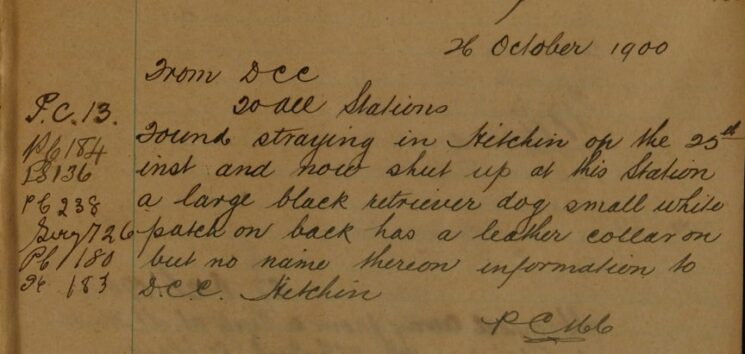 26 October 1900
From DCC
To all Stations
P.C. 13.
Found straying in Hitchin on the 25th
PC 184
inst and now shut up at this Station
PS 136
a large black retriever dog small white
PC 238
patch on back has a leather collar on
Serg 726
but no name thereon information to
PC 180
D.C.C. Hitchin
183